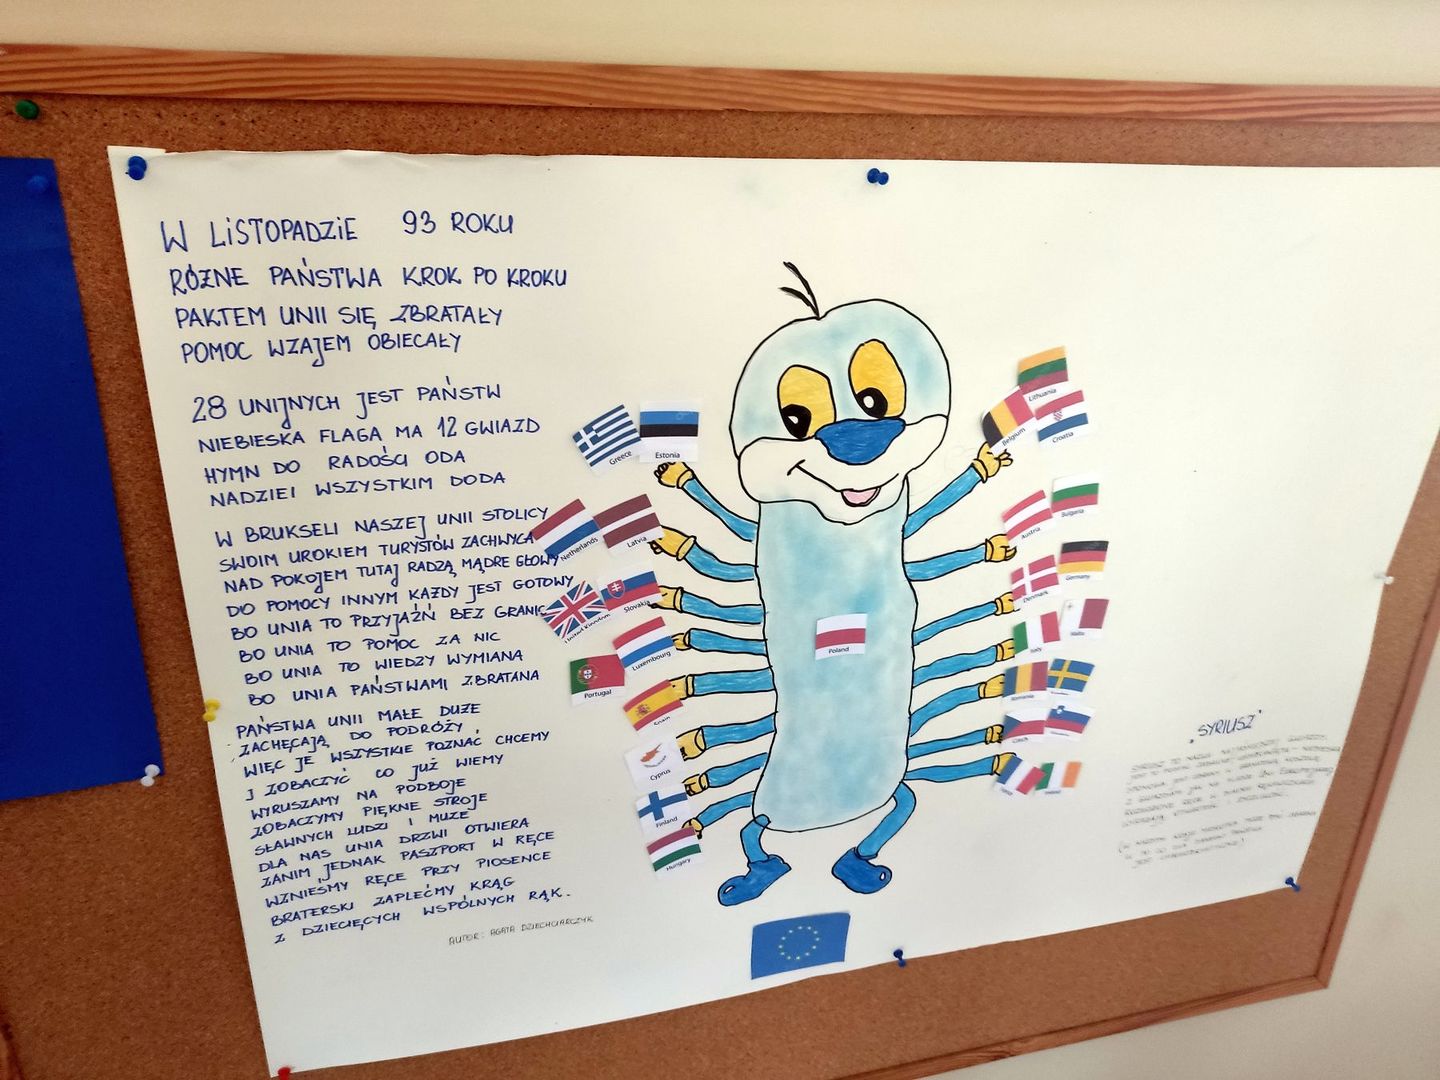 W LISTOPADZIE 93 ROKU
RÓŻNE PAŃSTWA KROK PO KROKU
PAKTEM UNII SIĘ ZBRATAŁY
POMOC WZAJEM OBIECAŁY
28 UNIJNYCH JEST PAŃSTW
NIEBIESKA FLAGA MA 12 GWIAZD
HYMN DO RADOŚCI ODA
NADZIEI WSZYSTKIM DODA
W BRUKSELI NASZEJ UNII STOLICY
SWOIM UROKIEM TURYSTÓW ZACHWYCA
NAD POKOJEM TUTAJ RADZĄ MĄDRE GŁOWY
DO POMOCY INNYM KAŻDY JEST GOTOWY
BO UNIA TO PRZYJAŹŃ BEZ GRANIC
BO UNIA TO POMOC ZA NIC
BO UNIA TO WIEDZY WYMIANA
BO UNIA PAŃSTWAMI ZBRATANA
PAŃSTWA UNII MAŁE DUŻE
ZACHĘCAJĄ DO PODRÓŻY
WIĘC JE WSZYSTKIE POZNAĆ CHCEMY
I ZOBACZYĆ CO JUŻ WIEMY
WYRUSZAMY NA PODBOJE
ZOBACZYMY PIĘKNE STROJE
SŁAWNYCH LUDZI I MUZE
DLA NAS UNIA DRZWI OTWIERA
ZANIM JEDNAK PASZPORT W RĘCE
WZNIEŚMY RĘCE PRZY PIOSENCE
BRATERSKI ZAPLEĆMY KRĄG
Z DZIECIĘCYCH WSPÓLNYCH RĄK.
AUTOR: AGATA DZIECHCIARCZYK
Greece
Estonia
Netherlands
Latvia
United Kingdom
Slovakia
Luxembourg
Portugal
Spain
Cyprus
Finland
Hungary
Poland
Lithuania
Belgium
Croatia
Austria
Bulgaria
Germany
Denmark
Malta
Italy
Romania
Czech
"SYRIUSZ"